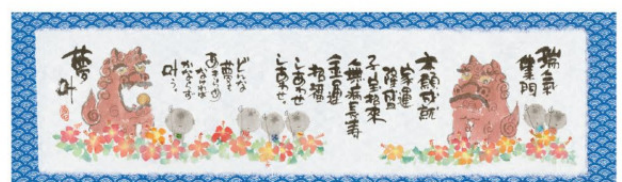 瑞氣
集門
大願成就
家運
隆盛
子宝招来
無病長寿
金運
招福
しあわせ
しあわせ
どんな
夢でも
あきらめ
なければ
かならず
叶う。
夢叶